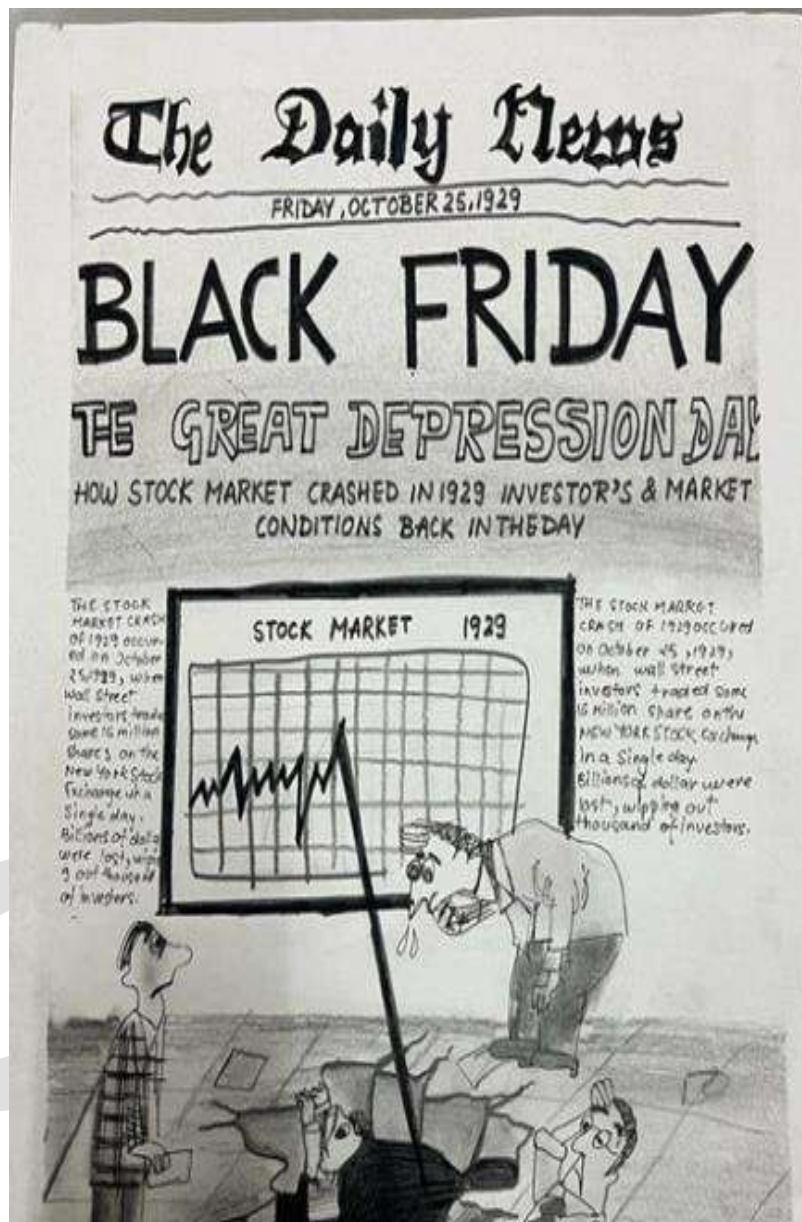 The Daily News
FRIDAY, OCTOBER 25, 1929
BLACK FRIDAY
TE GREAT DEPRESSION DAY
HOW STOCK MARKET CRASHED IN 1929 INVESTOR'S & MARKET
CONDITIONS BACK IN THE DAY
THE STOCK
MARKET CRASH
OF 1929 occurr
ed on October
when
Wall Street
investors trade
some 16 million
shares on the
New York Stock
Exchange in a
Single day.
Billions of dolla
were lost, wipin
g out thousand
of investors.
STOCK MARKET 1929
THE STOCK MARKET
CRASH OF 1929 OCCURed
on October 25, 1929,
when wall street
investors traded some
16 million share on the
NEW YORK STOCK Exchange
In a Single day.
Billions of dollar were
lost, wipping out
thousand of investors.